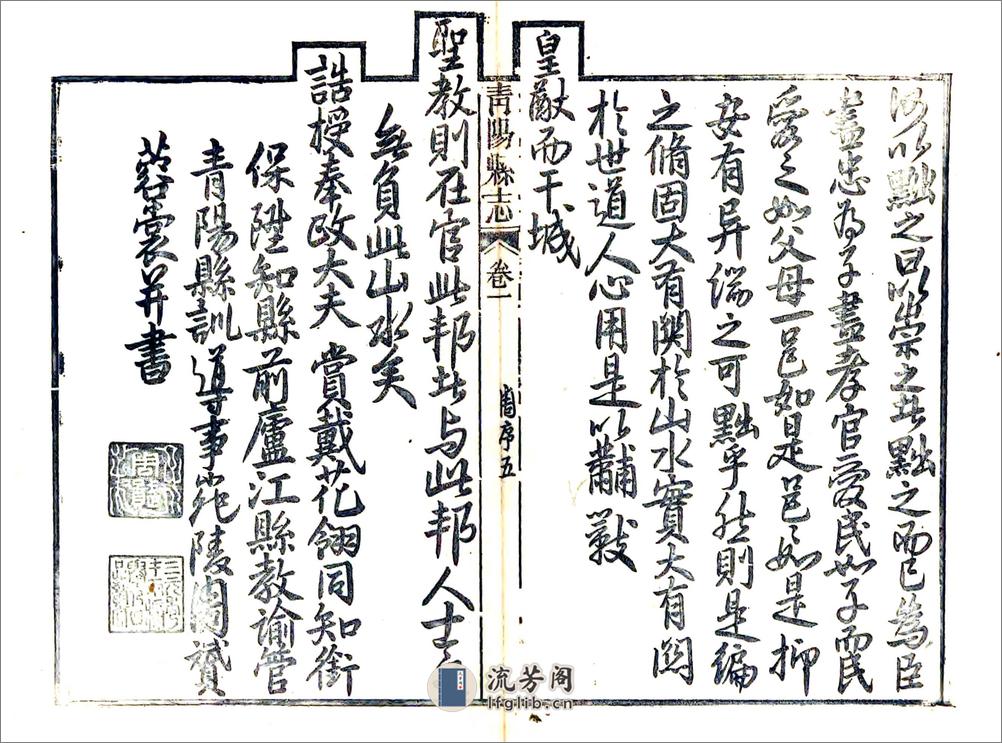 何以黜之曰以崇之者黜之而已為臣
盡忠為子盡孝官愛民如子而民
愛之如父母一邑如是邑邑如是抑
安有异端之可黜乎然則是編
之脩固大有關於山水實大有關
於世道人心用是以黼黻
皇猷而干城
青陽縣志
卷一
周序五
聖教則在官此邦者与此邦人士
無負此山水矣
誥授奉政大夫賞戴花翎同知銜
保陞知縣前廬江縣教諭管
青陽縣訓導事宛陵周贇
蓉裳并書
周贇
流芳阁
lfglib.cn